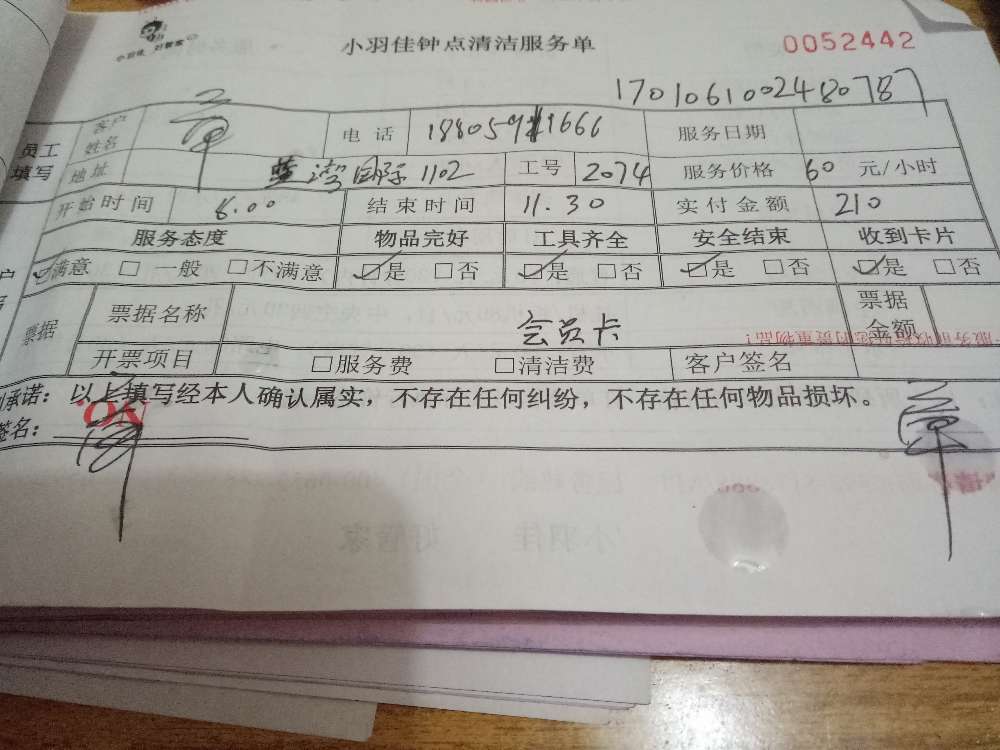 小羽佳 好管家
小羽佳钟点清洁服务单
0052442
1701061002480787
员工填写 客户姓名 电话 服务日期
地址 蓝湾国际1102 工号 2074 服务价格 60 元/小时
开始时间 8.00 结束时间 11.30 实付金额 210
服务态度 物品完好 工具齐全 安全结束 收到卡片
☑满意 □一般 □不满意 ☑是 □否 ☑是 □否 ☑是 □否 ☑是 □否
票据 票据名称 会员卡 票据金额
开票项目 □服务费 □清洁费 客户签名
承诺：以上填写经本人确认属实，不存在任何纠纷，不存在任何物品损坏。
签名：